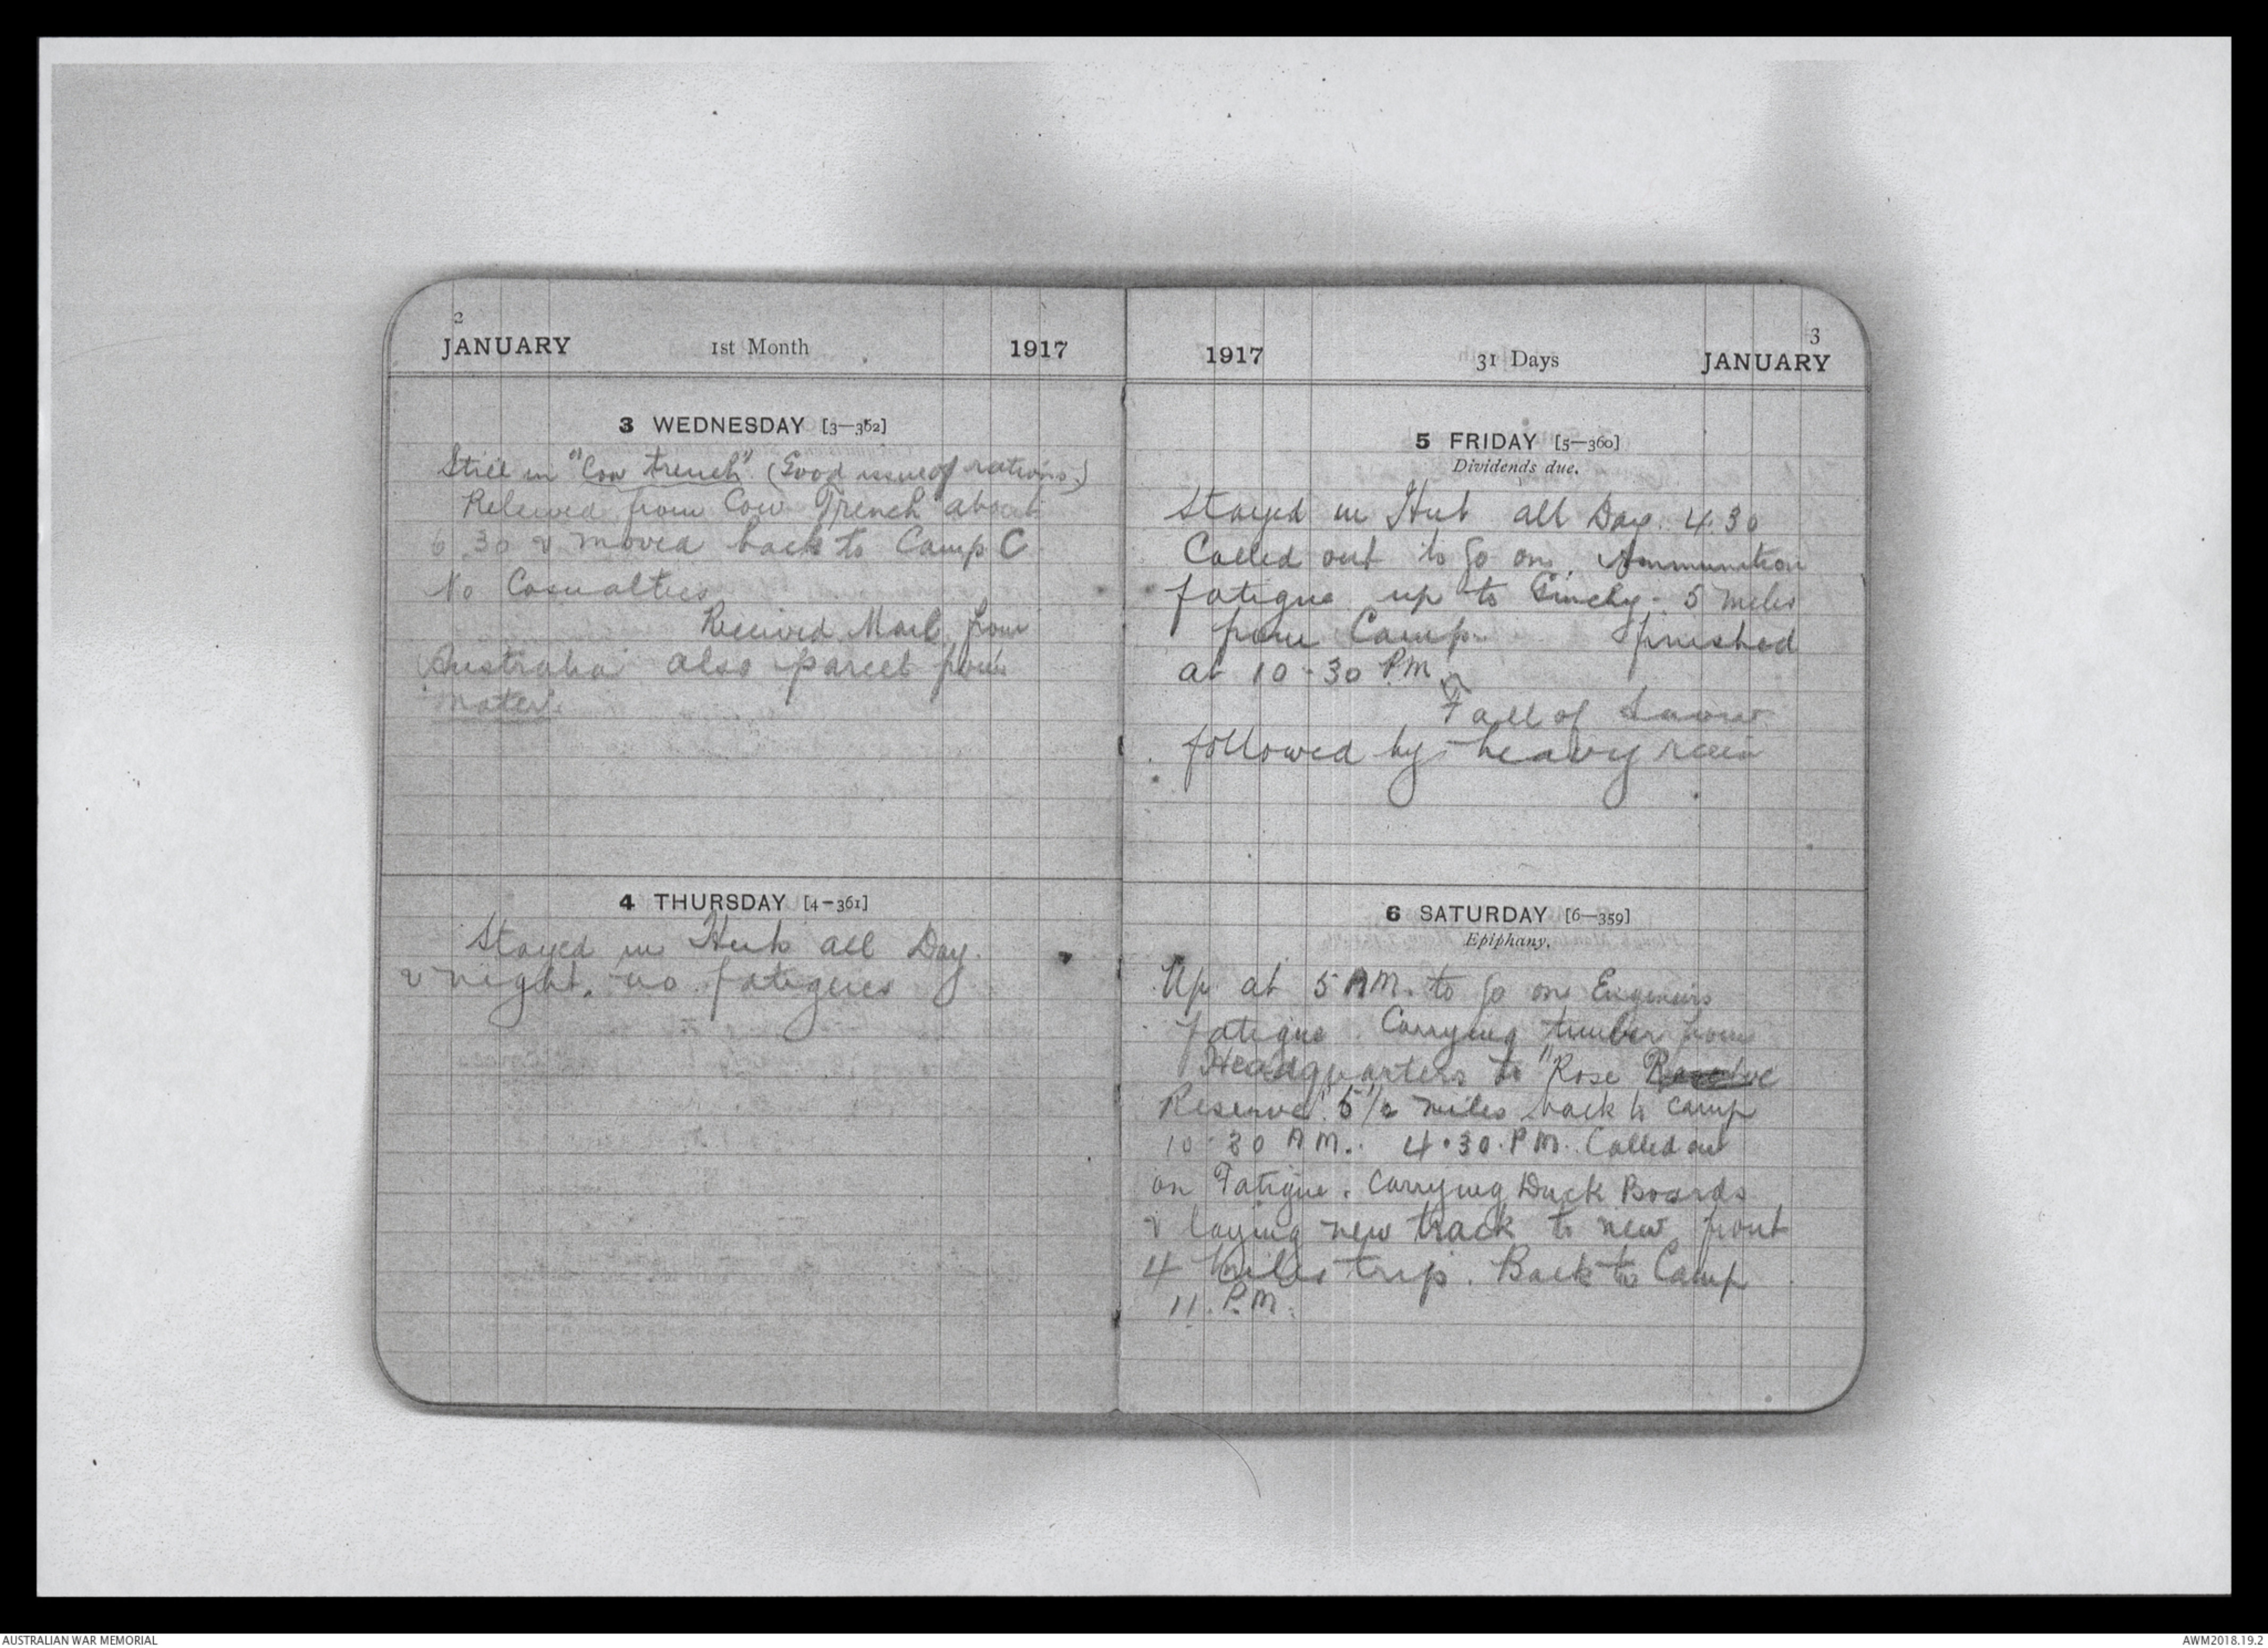 2
JANUARY 1st Month 1917
3 WEDNESDAY [3—362]
Still in "Cow trench" (Good issue of rations)
Relieved from Cow Trench about
6.30 & moved back to Camp C
No Casualties
Received Mail from
Australia also parcel from
Mater.
4 THURSDAY [4—361]
Stayed in Hut all Day.
& night. no fatigues
3
1917 31 Days JANUARY
5 FRIDAY [5—360]
Dividends due.
Stayed in Hut all Day. 4.30
Called out to go on Ammunition
fatigue up to Ginchy. 5 miles
from Camp. finished
at 10-30 P.M.
Fall of Snow
followed by heavy rain
6 SATURDAY [6—359]
Epiphany.
Up at 5 AM. to go on Engineers
fatigue. Carrying timber from
Headquarters to "Rose
Reserve". 5 1/2 miles back to camp
10-30 AM. 4.30. P.M. Called out
on Fatigue. Carrying Duck Boards
& laying new track to new front
4 Miles trip. Back to Camp
11. P.M.
AUSTRALIAN WAR MEMORIAL
AWM2018.19.2